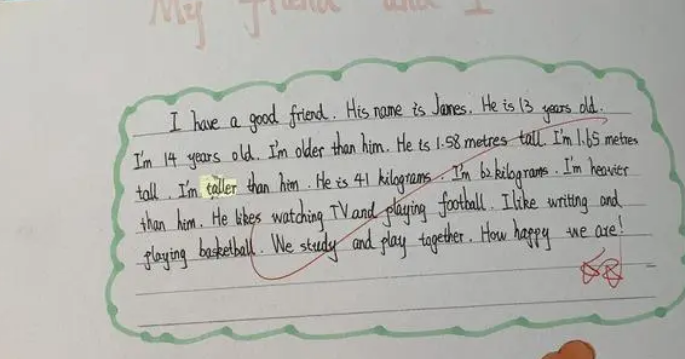 My friend and I
I have a good friend. His name is James. He is 13 years old.
I'm 14 years old. I'm older than him. He is 1.58 metres tall. I'm 1.65 metres
tall. I'm taller than him. He is 41 kilograms. I'm 62 kilograms. I'm heavier
than him. He likes watching TV and playing football. I like writing and
playing basketball. We study and play together. How happy we are!